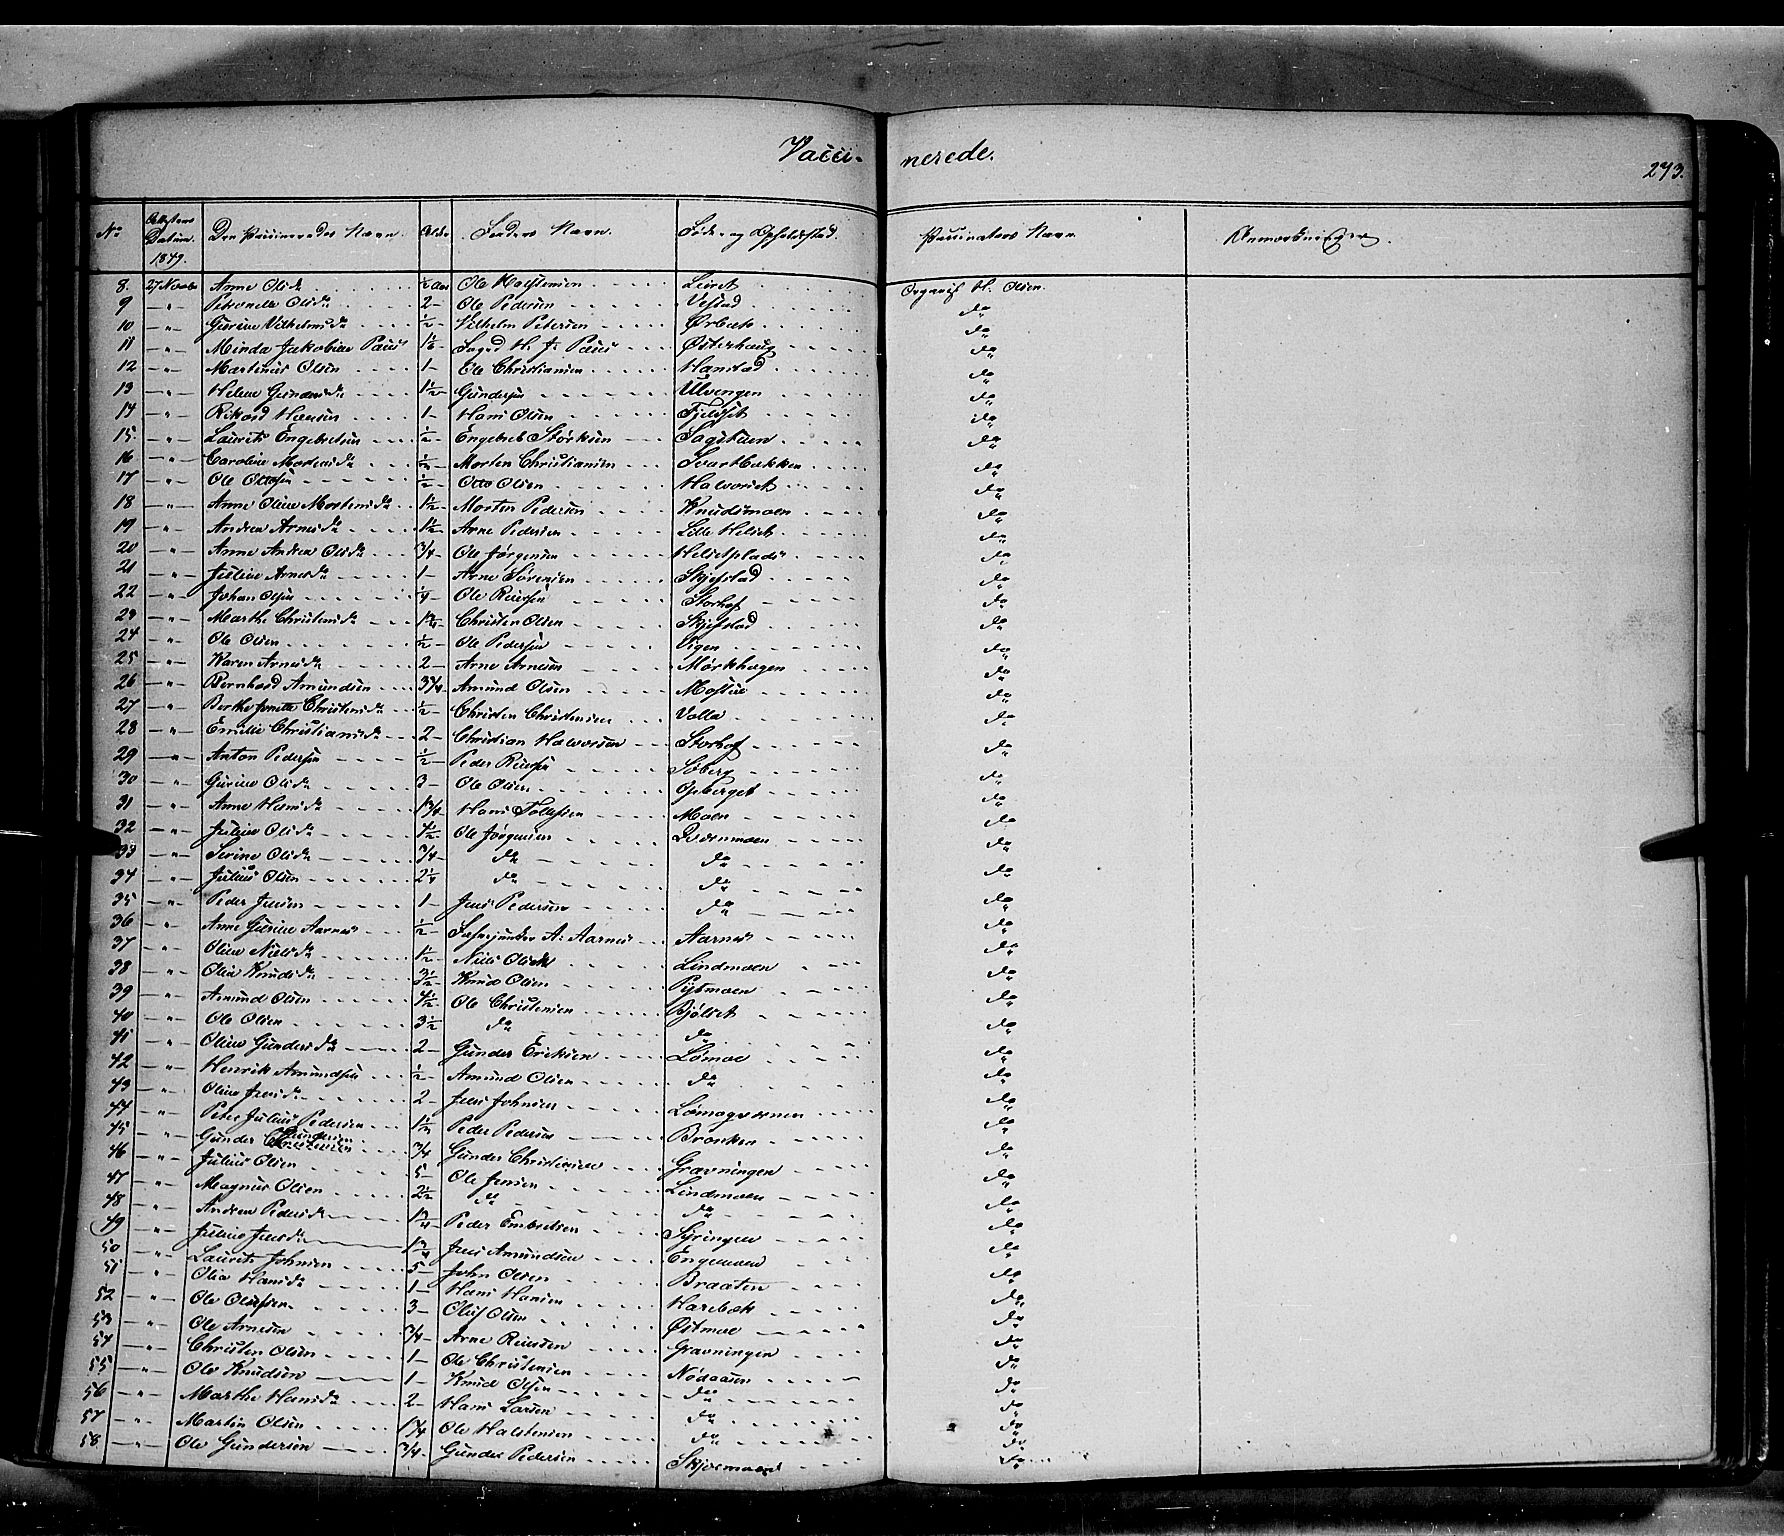 Vacci- nerede. 273.
No Attestens Datum. 1849. Den Vaccineredes Navn. Alder Faders Navn. Føde- og Opholdsstad. Vaccinateurs Navn Anmærkninger.
8. 27 Novbr Anne Olsdr ½ Aar Ole Halstensen Leiret Organist H. Olsen.
9 —"— Petronelle Olsdr 2- Ole Pedersen Vestad do
10 —"— Gurine Vilhelmsdr ½- Vilhelm Petersen Ørbæk do
11 —"— Minda Jakobine Paus H. J. Paus Østerhaug do
12 —"— Martinus Olsen 1- Ole Christiansen Hanstad do
13 —"— Helene Gundersdr 1½- Gundersen Ulvengen do
14 —"— Rikard Hansen 1- Hans Olsen Fjeldset do
15. —"— Laurits Engebretsen ½- Engebret Størksen Sagstuen do
16 —"— Caroline Mortensdr ½- Morten Christiansen Svartbækken do
17 —"— Ole Ottosen ½- Otto Olsen Halvorset do
18 —"— Anne Oline Mortensdr 1½- Morten Pedersen Knudsmoen do
19 —"— Andrea Arnesdr 1½- Arne Pedersen Lille Helset do
20 —"— Anne Andrea Olsdr ¾- Ole Jørgensen Helsetplads do
21 —"— Juline Arnesdr 1- Arne Sørensen Skjefstad do
22 —"— Johan Olsen ¼- Ole Reiersen Storhof do
23 —"— Marthe Christensdr 1½- Christen Olsen Skjefstad do
24 —"— Ole Olsen ½- Ole Pedersen Vigen do
25 —"— Karen Arnesdr 2- Arne Arnesen Mørkhagen do
26 —"— Bernhard Amundsen 3¾- Amund Olsen Mostue do
27 —"— Berthe Jonette Christensdr ½- Christen Christensen Volla do
28 —"— Emilie Christiansdr 2- Christian Halvorsen Storhof do
29 —"— Anton Pedersen ½- Peder Reiersen Søberg do
30 —"— Gurine Olsdr 3- Ole Olsen Opberget do
31 —"— Anne Hansdr 1¾- Hans Tollefsen Moen do
32 —"— Juline Olsdr 4½- Ole Jørgensen Qvernmoen do
33 —"— Serine Olsdr ¾- do do do
34 —"— Julius Olsen 2¼ do do do
35 —"— Peder Jensen 1- Jens Pedersen do do
36 —"— Anne Gurine Aarnes ½- A. Aarnes Aarnes do
37 —"— Oline Nielsdr 1½- Niels Lindmoen do
38 —"— Olia Knudsdr 3½- Knud Olsen Pytmoen do
39 —"— Amund Olsen 4½- Ole Christensen Bjølset do
40 —"— Ole Olsen 3½ do do do
41 —"— Oline Gundersdr 2- Gunder Eriksen Lømoe do
42 —"— Henrik Amundsen ½- Amund Olsen do do
43 —"— Oline Jensdr 2- Jens Johnsen Lømoqvernen do
44 —"— Peter Julius Pedersen 1½- Peder Pedersen Bronken do
45 —"— Gunder Gundersen ¾- Gunder Christiansen Gravningen do
46 —"— Julius Olsen 5- Ole Jensen Lindmoen do
47 —"— Magnus Olsen 2½- do do do
48 —"— Andrea Pedersdr 1¾- Peder Embretsen Syringen do
49 —"— Juline Jensdr 1¾- Jens Amundsen Engemoen do
50 —"— Laurits Johnsen 5- John Olsen Braaten do
51 —"— Olia Hansdr 1- Hans Hansen Harebæk do
52 —"— Ole Olufsen 3- Oluf Olsen Østmoe do
53 —"— Ole Arnesen ¾- Arne Reiersen Gravningen do
54 —"— Christen Olsen 1- Ole Christensen Nødaasen do
55 —"— Ole Knudsen 1- Knud Olsen do do
56 —"— Marthe Hansdr 2- Hans Larsen do do
57 —"— Martin Olsen 1¼ Ole Halstensen do do
58 —"— Ole Gundersen ¾- Gunder Pedersen do